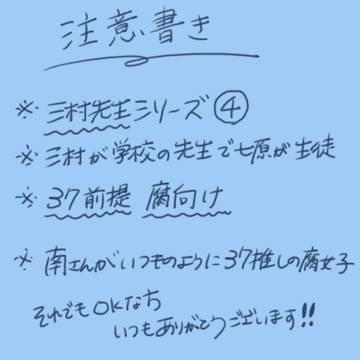 注意書き
※三村先生シリーズ④
※三村が学校の先生で七原が生徒
※37前提 腐向け
※南さんがいつものように37推しの腐女子
それでもOKな方
いつもありがとうございます!!